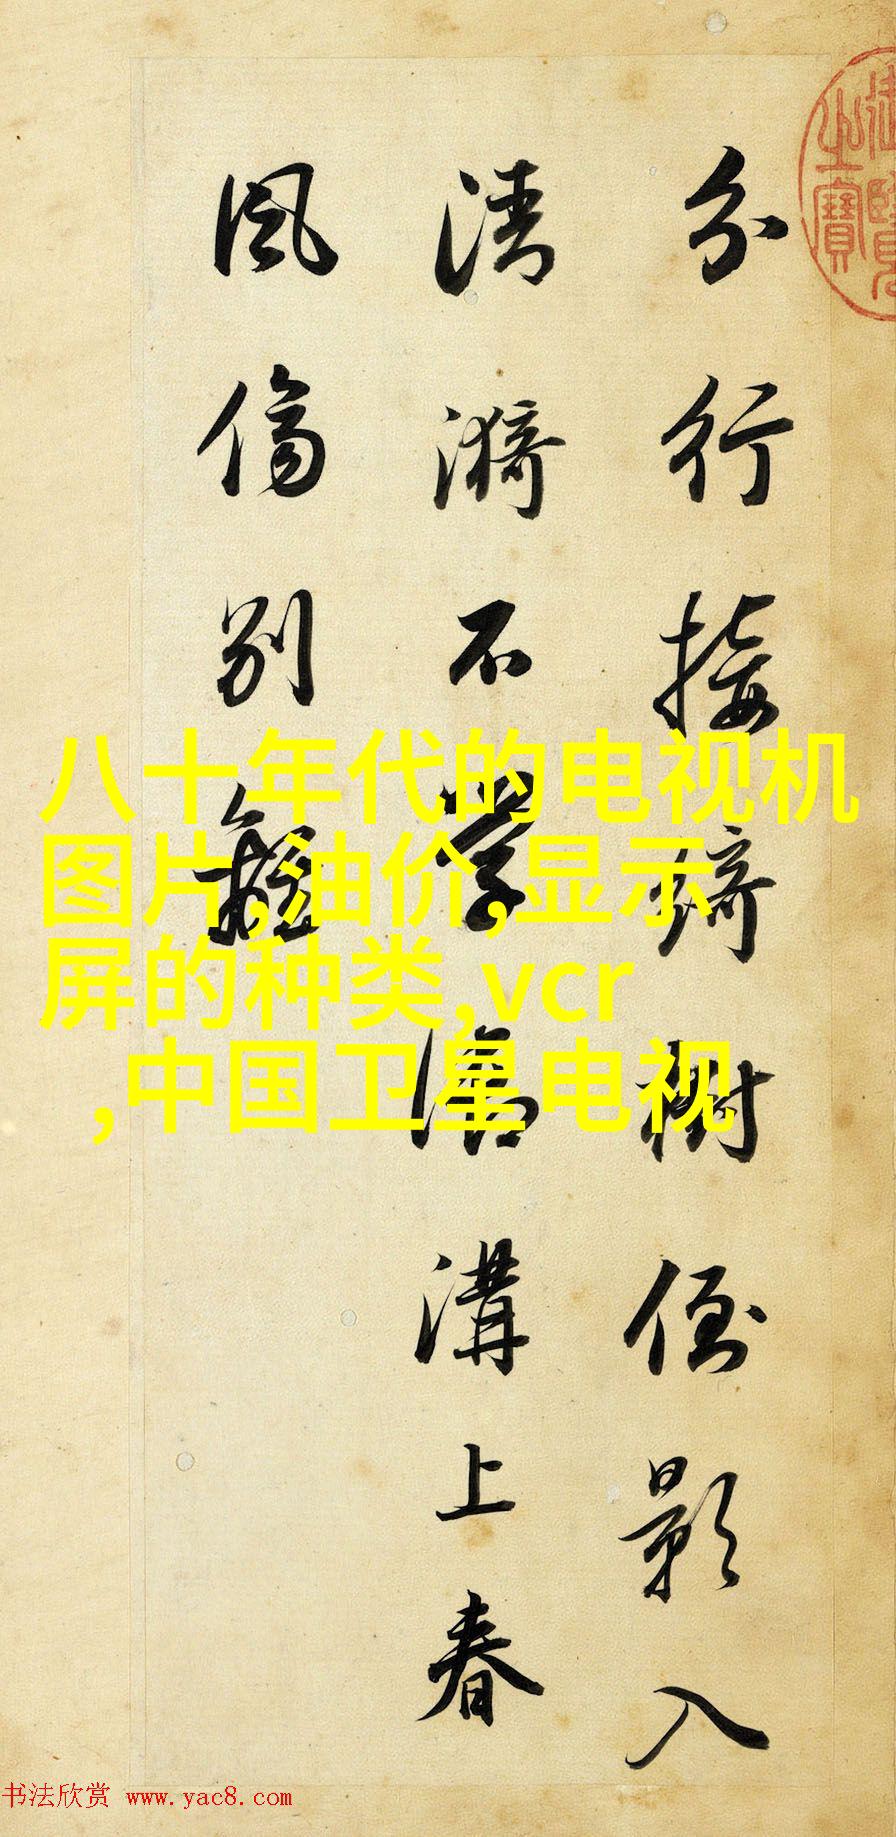 分行接綺樹倒影入
清漪不學溝上春
風傷別離
之寶
八十年代的电视机
图片,油价,显示
屏的种类,vcr
,中国卫星电视
书法欣赏 www.yac8.com